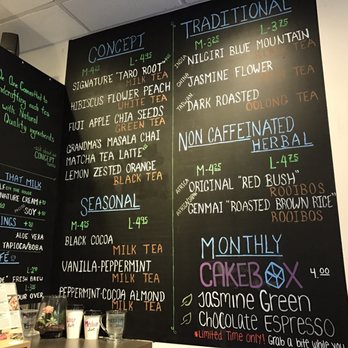 We Are Committed to
Handcrafting each tea
with Natural
Quality ingredients
CONCEPT
THAT MILK
NATURE CREAM
SOY
ALOE VERA
TAPIOCA/BOBA
FRESH BREW
POUR OVER
CONCEPT
L-4.95
SIGNATURE "TARO ROOT"
MILK TEA
HIBISCUS FLOWER PEACH
WHITE TEA
FUJI APPLE CHIA SEEDS
GREEN TEA
GRANDMA'S MASALA CHAI
MATCHA TEA LATTE
LEMON ZESTED ORANGE
BLACK TEA
SEASONAL
BLACK COCOA
MILK TEA
VANILLA-PEPPERMINT
MILK TEA
PEPPERMINT-COCOA ALMOND
MILK TEA
TRADITIONAL
M-3.25 L-3.75
INDIA
NILGIRI BLUE MOUNTAIN
TEA
CHINA
JASMINE FLOWER
TEA
DARK ROASTED
OOLONG TEA
NON CAFFEINATED
HERBAL
M-4.25 L-4.75
AFRICA
ORIGINAL "RED BUSH"
ROOIBOS
GENMAI "ROASTED BROWN RICE"
ROOIBOS
MONTHLY
CAKEBOX 4.00
Jasmine Green
Chocolate Espresso
*Limited Time only!! Grab a bite while you